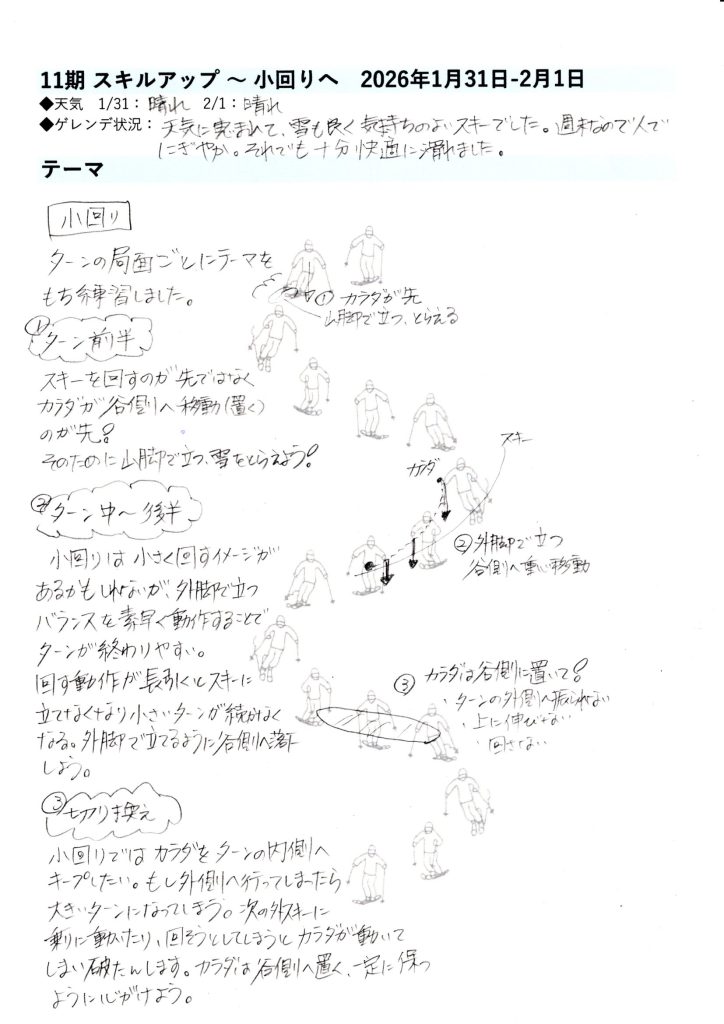 11期 スキルアップ ～ 小回りへ　2026年1月31日-2月1日
◆天気　1/31： 晴れ　2/1： 晴れ
◆ゲレンデ状況： 天気に恵まれて、雪も良く気持ちのよいスキーでした。週末なので人で
にぎやか。それでも十分快適に滑れました。
テーマ
小回り
ターンの局面ごとにテーマを
もち練習しました。
① カラダが先
山脚で立つ、とらえる
① ターン前半
スキーを回すのが先ではなく
カラダが谷側へ移動(置く)
のが先!
そのために山脚で立つ、雪をとらえよう!
スキー
カラダ
② ターン中〜後半
② 外脚で立つ
谷側へ重い移動
小回りは小さく回すイメージが
あるかもしれないが、外脚で立つ
バランスを素早く動作することで
ターンが終わりやすい。
回す動作が長引くとスキーに
立てなくなり小さいターンが続かなく
なる。外脚で立てるように谷側へ落下
しよう。
③ カラダは谷側に置いて!
・ターンの外側へ振られない
・上に伸びない
・回さない
③ 切り換え
小回りではカラダをターンの内側へ
キープしたい。もし外側へ行ってしまったら
大きいターンになってしまう。次の外スキーに
乗りに動いたり、回そうとしてしまうとカラダが動いて
しまい破たんします。カラダは谷側へ置く、一定に保つ
ように心がけよう。